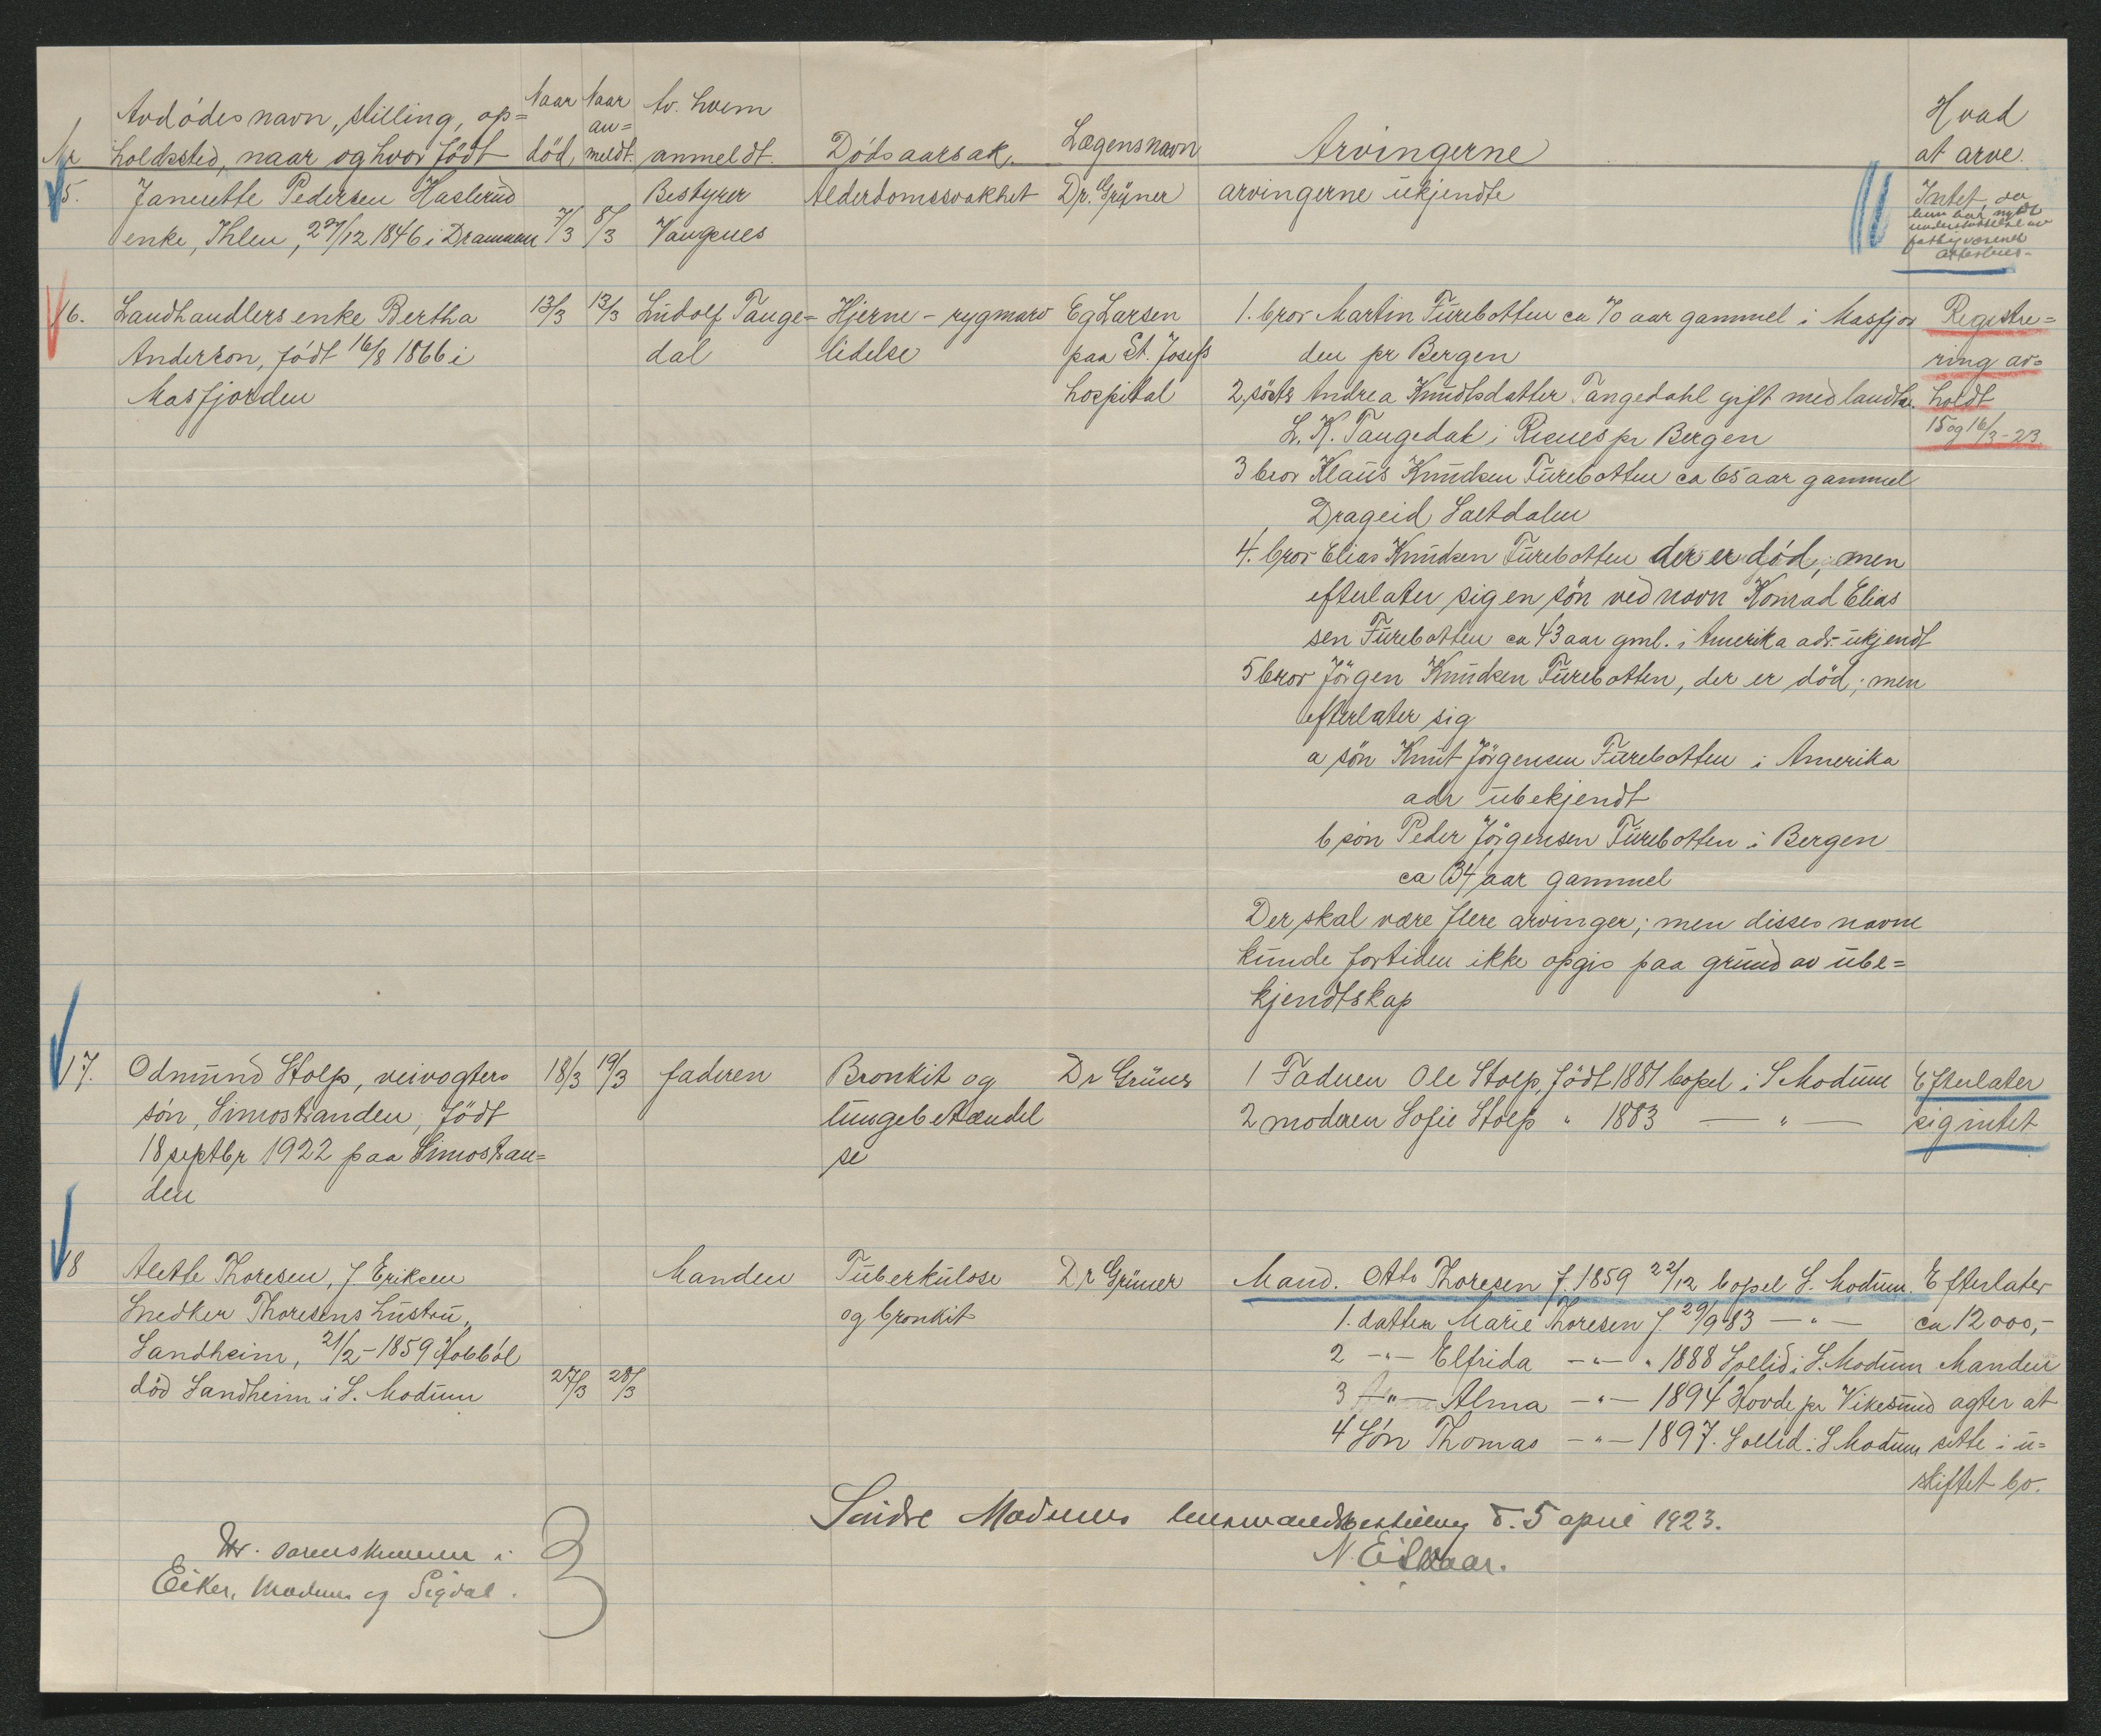 Nr
Avdødes navn, stilling, op=
holdssted, naar og hvor født
Naar
død
Naar
an=
meldt.
Av hvem
anmeldt.
Dødsaarsak.
Lægens navn
Arvingerne
Hvad
at arve.
15.
Janette Pedersen Haslerud
enke, Ihlen, 27/12 1846 i Drammen
7/3
8/3
Bestyrer
Vangnes
Alderdomssvakhet
Dr. Grüner
arvingerne ukjendte
Intet, da
hun har nydt
understøttelse av
fattigvæsenet
16.
Landhandlers enke Bertha
Anderson, født 16/8 1866 i
Masfjorden
13/3
13/3
Ludolf Tange=
dal
Hjerne- rygmarv
lidelse
Eg Larsen
paa St. Josefs
hospital
1. bror Martin Furebotten ca 70 aar gammel i Masfjor
den pr Bergen
2, søster Andrea Knudtsdatter Tangedahl gift med landh.
L. K. Tangedal i Risnes pr Bergen
3 bror Klaus Knudsen Furebotten ca 65 aar gammel
Drageid Saltdalen
4. bror Elias Knudsen Furebotten der er død; men
efterlater sig en søn ved navn Konrad Elias
sen Furebotten ca 43 aar gml. i Amerika adr. ukjendt
5 bror Jörgen Knudsen Furebotten, der er död; men
efterlater sig
a sön Knut Jörgensen Furebotten i Amerika
adr ubekjendt
b sön Peder Jörgensen Furebotten i Bergen
ca 34 aar gammel
Der skal være flere arvinger; men disses navne
kunde fortiden ikke opgis paa grund av ube=
kjendtskap
Registre=
ring av=
holdt
15 og 16/3-23
17.
Odmund Stolp, veivogters
søn, Simostranden, født
18 septbr 1922 paa Simostran=
den
18/3
19/3
faderen
Bronkit og
lungebetændel
se
Dr Grüner
1 Faderen Ole Stolp, født 1881 bopel i S Modum
2 moderen Sofie Stolp " 1883 — " —
Efterlater
sig intet
18
Alette Thoresen, f Eriksen
Snedker Thoresens hustru,
Sandheim, 21/2-1859 Hobböl
död Sandheim i S. Modum
27/3
28/3
Manden
Tuberkulose
og bronkit
Dr Grüner
Mand. Otto Thoresen f. 1859 22/12 bopel S. Modum.
1. datter Marie Thoresen f. 29/9 83 — " —
2 -"- Elfrida -"- " 1888 Sollid i S. Modum
3 -"- Alma -"- 1894 Hovde pr Vikesund
4 Sön Thomas -"- 1897. Sollid i S Modum
Efterlater
ca 12000,-
Manden
agter at
sitte i u=
skiftet bo.
Söndre Modums lensmandsbestilling d. 5 april 1923.
N. Eilevaar.
Hr. sorenskriveren i
Eiker, Modum og Sigdal.
3